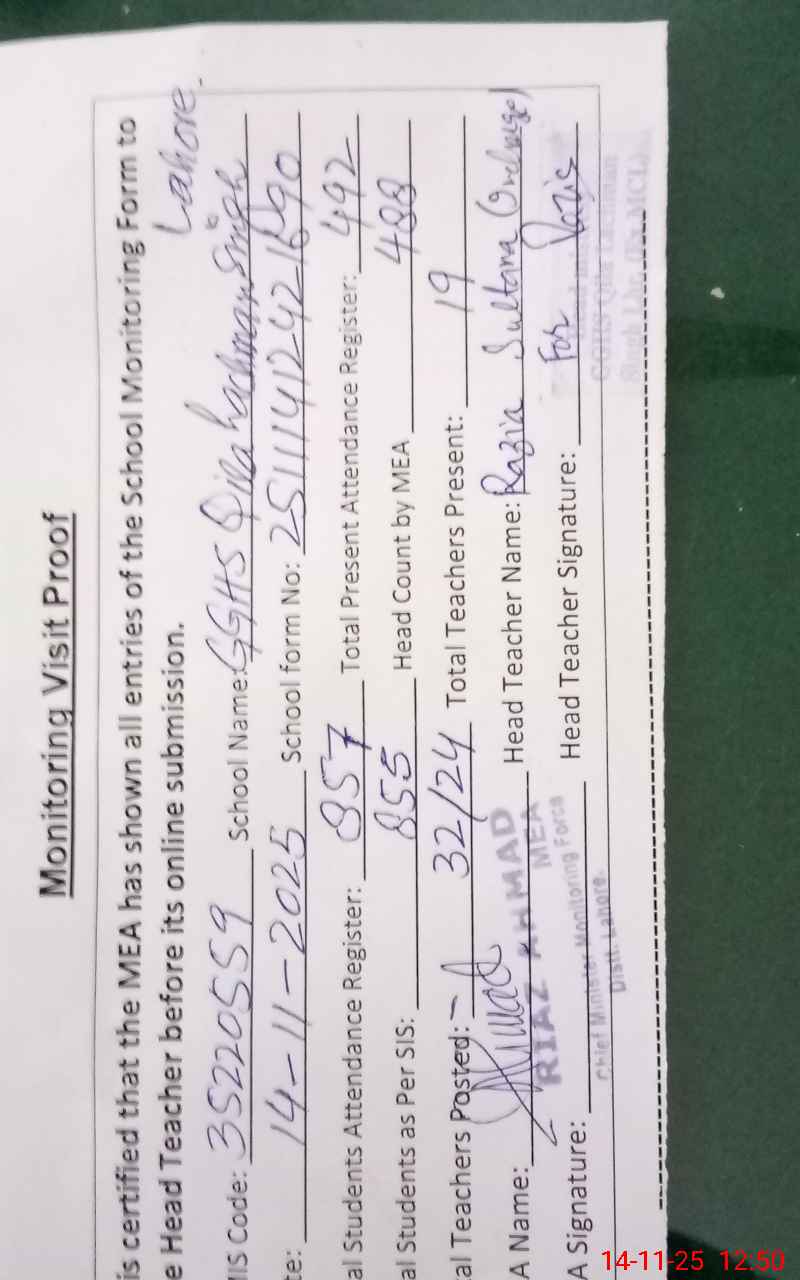 Monitoring Visit Proof
is certified that the MEA has shown all entries of the School Monitoring Form to
e Head Teacher before its online submission.
Lahore.
IS Code: 35220559 School Name: GGHS Qila Lachman Singh
te: 14-11-2025 School form No:
al Students Attendance Register: 857 Total Present Attendance Register: 492
al Students as Per SIS: 855 Head Count by MEA 488
al Teachers Posted: 32/24 Total Teachers Present: 19
A Name: Head Teacher Name: Razia Sultana
RIAZ AHMAD
MEA
A Signature: Head Teacher Signature: For Razia
Chief Minister Monitoring Force
Distt. Lahore.
14-11-25 12:50